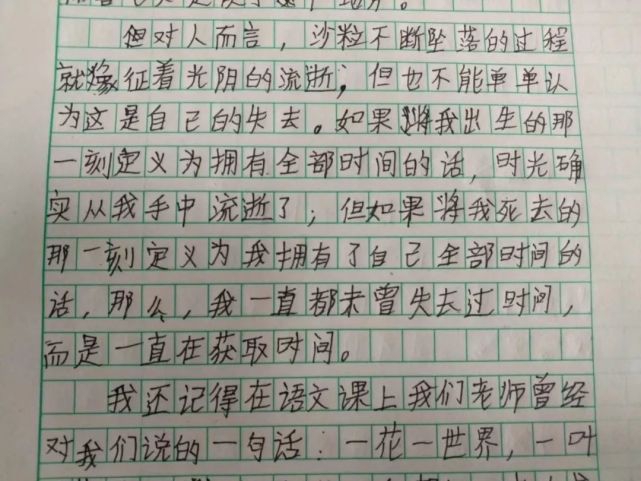 但对人而言，沙粒不断坠落的过程
就像征着光阴的流逝；但也不能单单认
为这是自己的失去。如果将我出生的那
一刻定义为拥有全部时间的话，时光确
实从我手中流逝了；但如果将我死去的
那一刻定义为我拥有了自己全部时间的
话，那么，我一直都未曾失去过时间，
而是一直在获取时间。
我还记得在语文课上我们老师曾经
对我们说的一句话：一花一世界，一叶